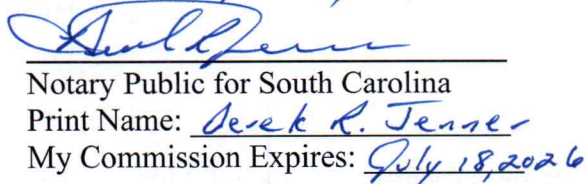 Notary Public for South Carolina
Print Name: Derek R. Jenner
My Commission Expires: July 18, 2026